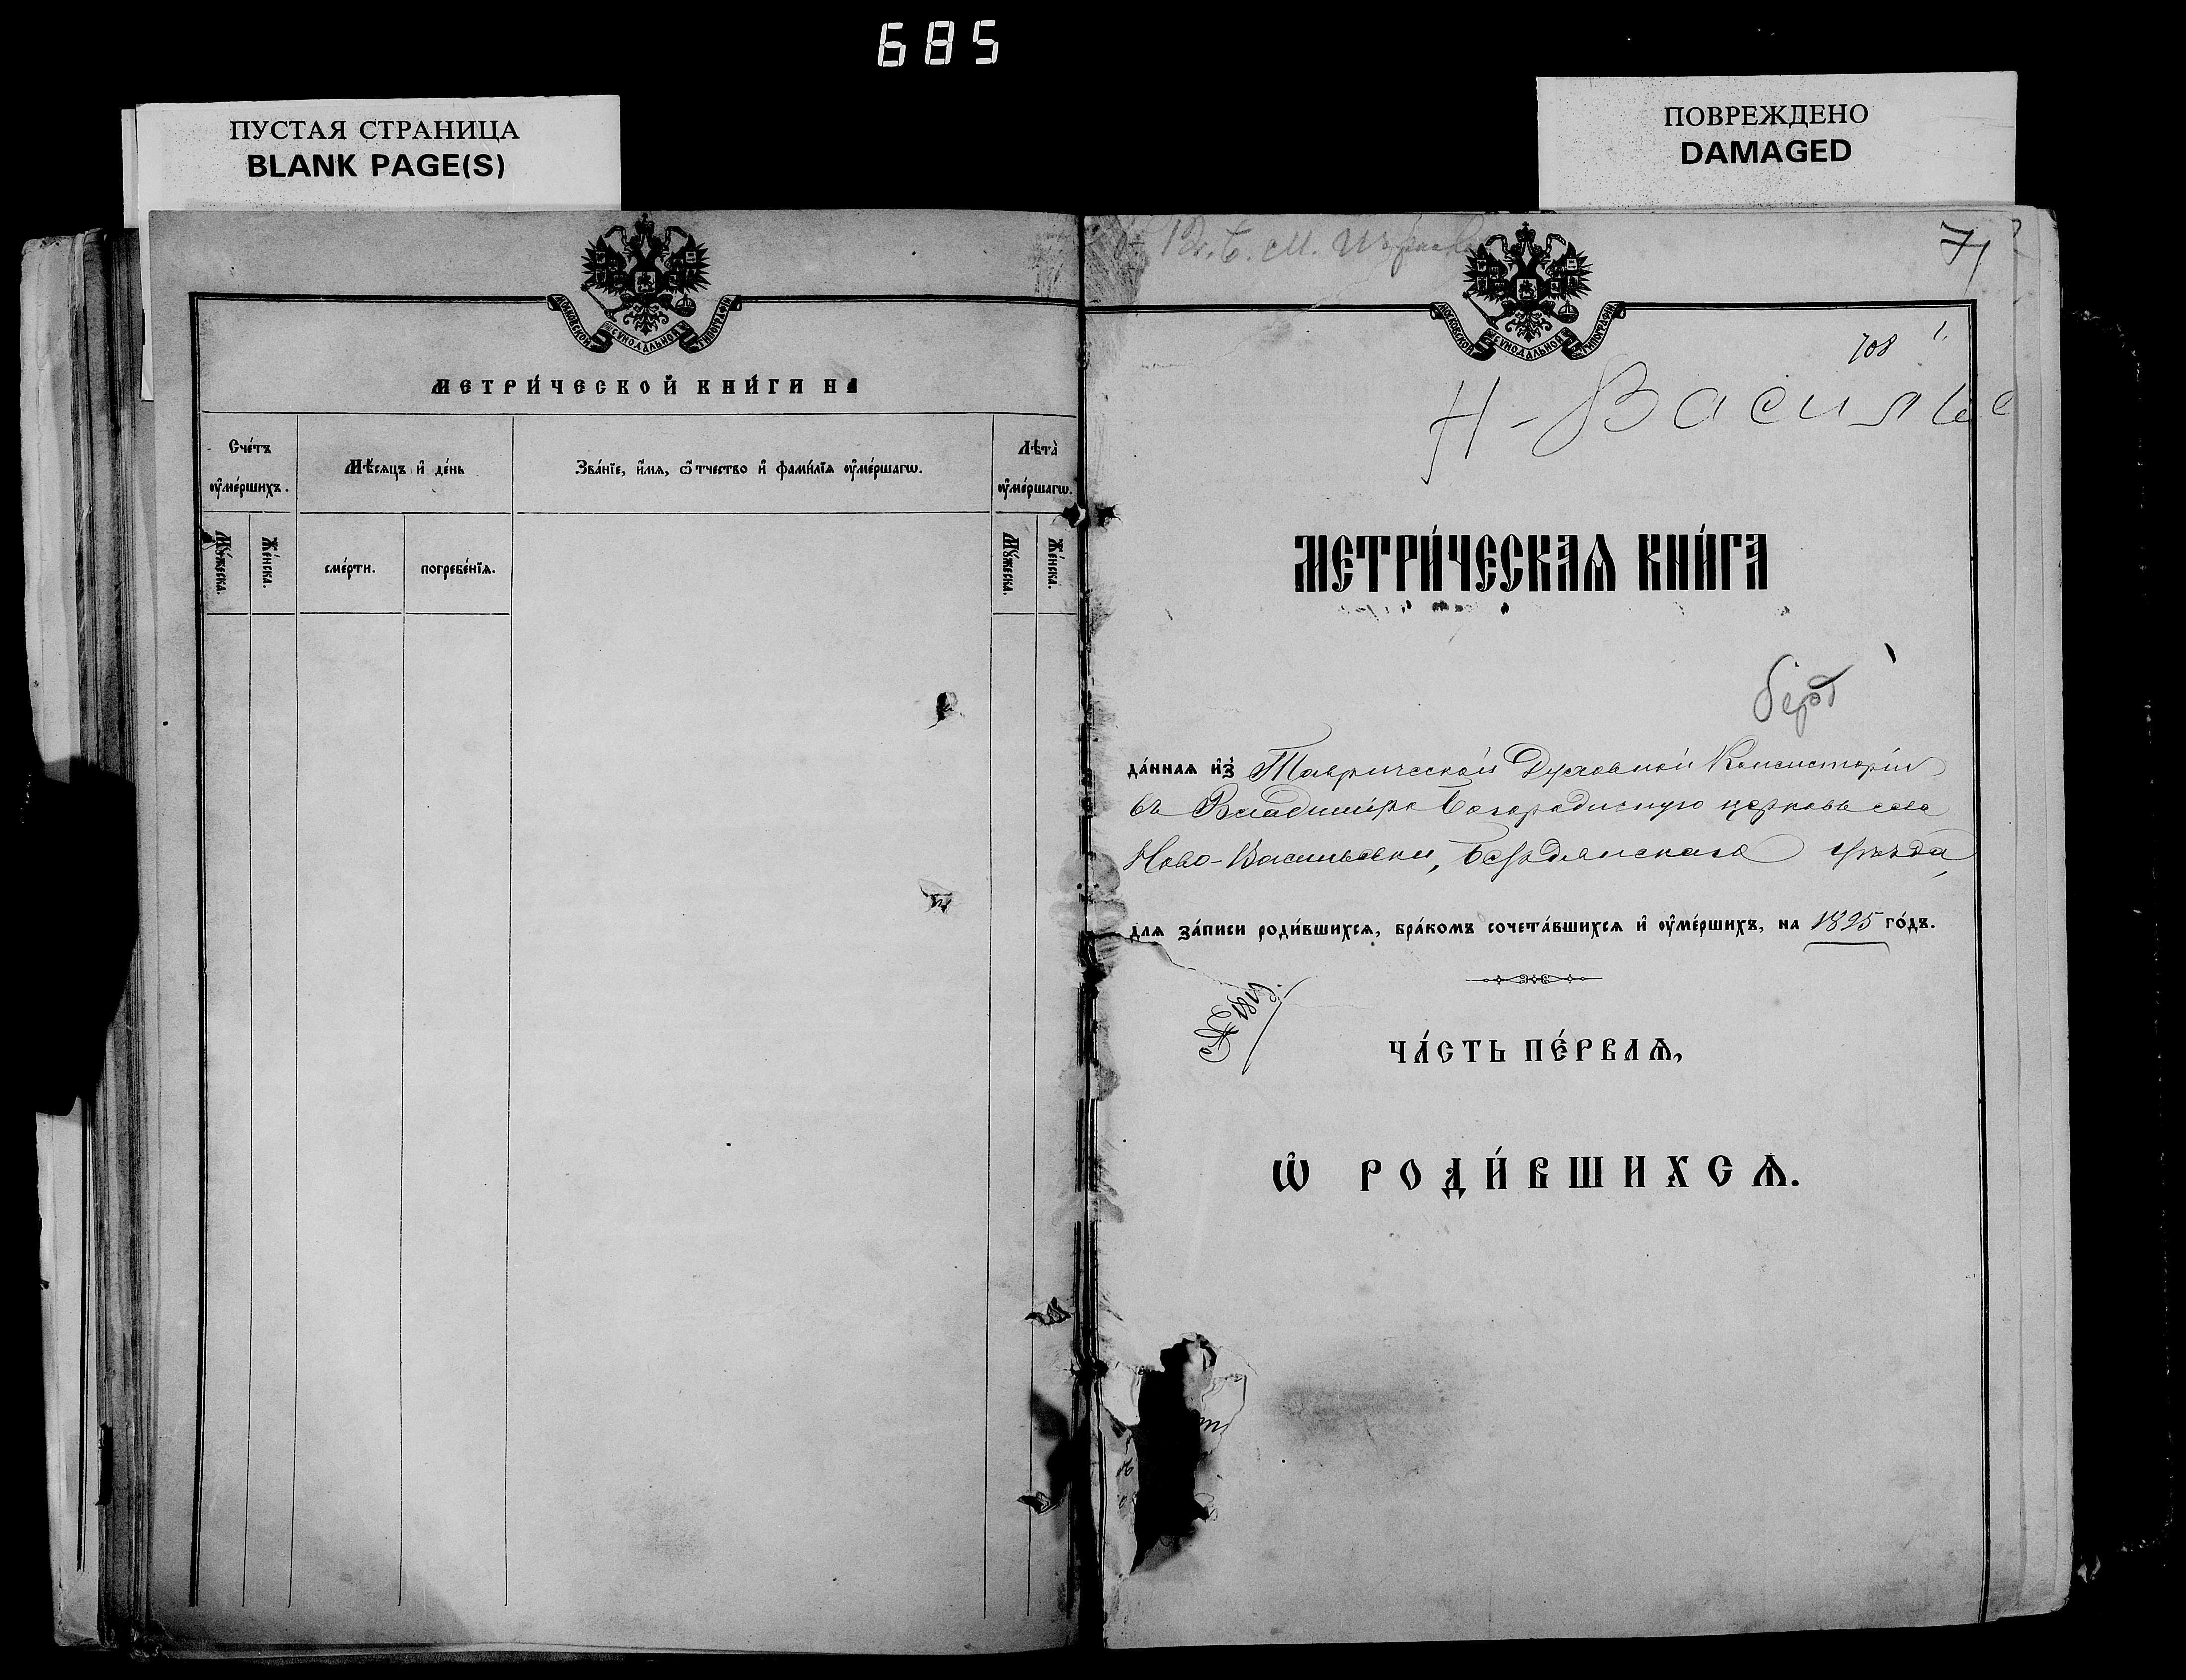 685
ПУСТАЯ СТРАНИЦА
BLANK PAGE(S)
МОСКОВСКОЙ СѴНОДАЛЬНОЙ ТИПОГРАФІИ
МЕТРИ́ЧЕСКОЙ КНИ́ГИ НА
Сче́тъ ᲂу҆ме́ршихъ.
Мѣ́сяцъ и҆ де́нь
Зва́нїе, и҆́мя, ѿтчество и҆ фами́лїя ᲂу҆ме́ршагѡ.
Лѣта̀ ᲂу҆ме́ршагѡ.
Мꙋ́жеска.
Же́нска.
сме́рти.
погребе́нїя.
Мꙋ́жеска.
Же́нска.
ПОВРЕЖДЕНО
DAMAGED
71
МОСКОВСКОЙ СѴНОДАЛЬНОЙ ТИПОГРАФІИ
708
Н-Василье
МЕТРИ́ЧЕСКАѦ КНИ́ГА
берд
да́нная и҆з̾ Таврической Духовной Консисторіи
въ Владиміро Богородичную церковь села
Ново-Васильевки, Бердянскаго уѣзда,
для за́писи роди́вшихся, бра́комъ сочета́вшихся и҆ ᲂу҆ме́ршихъ, на 1895 го́дъ.
ЧА́СТЬ ПЕ́РВАѦ,
Ѡ҆ РОДИ́ВШИХСѦ.